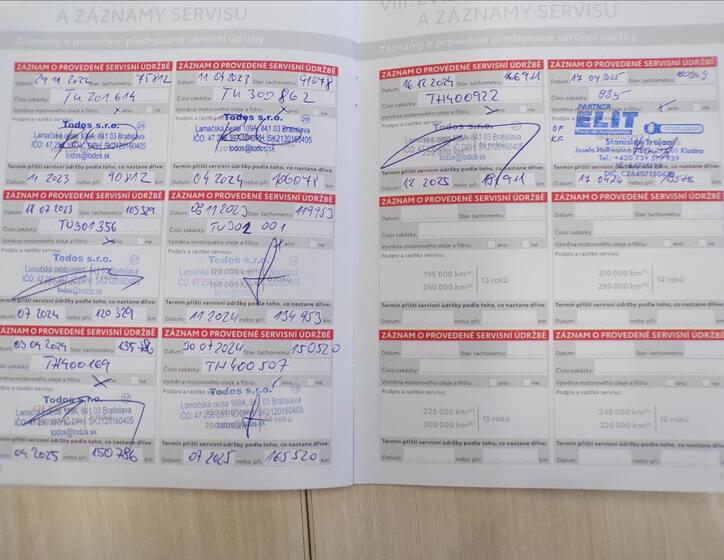 A ZÁZNAMY SERVISU
Záznamy o provedené předepsané servisní údržby
ZÁZNAM O PROVEDENÉ SERVISNÍ ÚDRŽBĚ
Datum: 29 11 2022 Stav tachometru: 75812
Číslo zakázky: TU 201614
Výměna motorového oleje a filtru: ano ne
Podpis a razítko servisu:
Todos s.r.o.
Lamačská cesta 109A, 841 03 Bratislava
todos@todos.sk
Termín příští servisní údržby podle toho, co nastane dříve:
Datum: 11 2023 nebo při: 90812 km
ZÁZNAM O PROVEDENÉ SERVISNÍ ÚDRŽBĚ
Datum: 11 04 2023 Stav tachometru: 91078
Číslo zakázky: TU 300862
Výměna motorového oleje a filtru: ano ne
Podpis a razítko servisu:
Todos s.r.o.
Lamačská cesta 109A, 841 03 Bratislava
todos@todos.sk
Termín příští servisní údržby podle toho, co nastane dříve:
Datum: 04 2024 nebo při: 106078 km
ZÁZNAM O PROVEDENÉ SERVISNÍ ÚDRŽBĚ
Datum: 18 07 2023 Stav tachometru: 105329
Číslo zakázky: TU301356
Výměna motorového oleje a filtru: ano ne
Podpis a razítko servisu:
Todos s.r.o.
Lamačská cesta 109A, 841 03 Bratislava
todos@todos.sk
Termín příští servisní údržby podle toho, co nastane dříve:
Datum: 07 2024 nebo při: 120329 km
ZÁZNAM O PROVEDENÉ SERVISNÍ ÚDRŽBĚ
Datum: 11 2023 Stav tachometru: 119953
Číslo zakázky: TU302 001
Výměna motorového oleje a filtru: ano ne
Podpis a razítko servisu:
Todos s.r.o.
120 000 km
160 000 km
todos@todos.sk
Termín příští servisní údržby podle toho, co nastane dříve:
Datum: 11 2024 nebo při: 134953 km
ZÁZNAM O PROVEDENÉ SERVISNÍ ÚDRŽBĚ
Datum: 09 04 2024 Stav tachometru: 135786
Číslo zakázky: TH400169
Výměna motorového oleje a filtru: ano ne
Podpis a razítko servisu:
Todos s.r.o.
Lamačská cesta 109A, 841 03 Bratislava
todos@todos.sk
Termín příští servisní údržby podle toho, co nastane dříve:
Datum: 04 2025 nebo při: 150786 km
ZÁZNAM O PROVEDENÉ SERVISNÍ ÚDRŽBĚ
Datum: 30 07 2024 Stav tachometru: 150520
Číslo zakázky: TH400507
Výměna motorového oleje a filtru: ano ne
Podpis a razítko servisu:
Todos s.r.o.
Lamačská cesta 109A, 841 03 Bratislava
todos@todos.sk
Termín příští servisní údržby podle toho, co nastane dříve:
Datum: 07 2025 nebo při: 165520 km
A ZÁZNAMY SERVISU
Záznamy o provedení předepsané servisní údržby
ZÁZNAM O PROVEDENÉ SERVISNÍ ÚDRŽBĚ
Datum: 16 12 2024 Stav tachometru: 166911
Číslo zakázky: TH400922
Výměna motorového oleje a filtru: ano ne
Podpis a razítko servisu:
Todos s.r.o.
todos@todos.sk
Termín příští servisní údržby podle toho, co nastane dříve:
Datum: 12 2025 nebo při: km
ZÁZNAM O PROVEDENÉ SERVISNÍ ÚDRŽBĚ
Datum: Stav tachometru:
Číslo zakázky: 835
Výměna motorového oleje a filtru: ano ne
PARTNER
ELIT
Stanislav Trojan
Kladno
Termín příští servisní údržby podle toho, co nastane dříve:
ZÁZNAM O PROVEDENÉ SERVISNÍ ÚDRŽBĚ
Datum: Stav tachometru:
Číslo zakázky:
Výměna motorového oleje a filtru: ano ne
Podpis a razítko servisu:
195 000 km
260 000 km
13 roků
Termín příští servisní údržby podle toho, co nastane dříve:
Datum: nebo při: km
ZÁZNAM O PROVEDENÉ SERVISNÍ ÚDRŽBĚ
Datum: Stav tachometru:
Číslo zakázky:
Výměna motorového oleje a filtru: ano ne
Podpis a razítko servisu:
210 000 km
280 000 km
14 roků
Termín příští servisní údržby podle toho, co nastane dříve:
Datum: nebo při: km
ZÁZNAM O PROVEDENÉ SERVISNÍ ÚDRŽBĚ
Datum: Stav tachometru:
Číslo zakázky:
Výměna motorového oleje a filtru: ano ne
Podpis a razítko servisu:
225 000 km
300 000 km
15 roků
Termín příští servisní údržby podle toho, co nastane dříve:
Datum: nebo při: km
ZÁZNAM O PROVEDENÉ SERVISNÍ ÚDRŽBĚ
Datum: Stav tachometru:
Číslo zakázky:
Výměna motorového oleje a filtru: ano ne
Podpis a razítko servisu:
240 000 km
320 000 km
16 roků
Termín příští servisní údržby podle toho, co nastane dříve:
Datum: nebo při: km